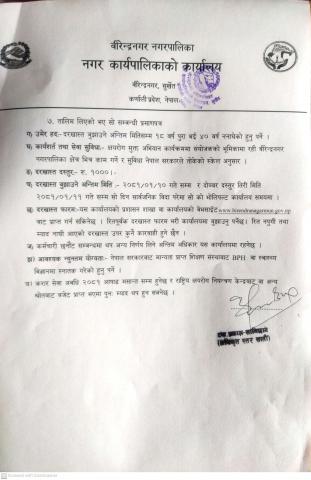 वीरेन्द्रनगर नगरपालिका
नगर कार्यपालिकाको कार्यालय
वीरेन्द्रनगर, सुर्खेत
कर्णाली प्रदेश, नेपाल
७. तालिम लिएको भए सो सम्बन्धी प्रमाणपत्र
ग) उमेर हदः- दरखास्त बुझाउने अन्तिम मितिसम्म १८ वर्ष पुरा भई ४० वर्ष ननाघेको हुनु पर्ने ।
घ) कार्यशर्त तथा सेवा सुविधाः- क्षयरोग मुक्त अभियान कार्यक्रममा संयोजकको भूमिकामा रही वीरेन्द्रनगर
नगरपालिका क्षेत्र भित्र काम गर्ने र सुविधा नेपाल सरकारले तोकेको स्केल अनुसार ।
ङ) दरखास्त दस्तुरः- रु. १०००।-
च) दरखास्त बुझाउने अन्तिम मिति :- २०८१/०१/१० गते सम्म र दोब्बर दस्तुर तिरी मिति
२०८१/०१/११ गते सम्म सो दिन सार्वजनिक विदा परेमा सो को भोलिपल्ट कार्यालय समयमा ।
छ) दरखास्त फारामः- यस कार्यालयको प्रशासन शाखा वा कार्यालयको वेबसाईट www.birendranagarmun.gov.np
बाट प्राप्त गर्न सकिनेछ । रितपूर्वक दरखास्त फारम भरी कार्यालयमा बुझाउनु पर्नेछ। रित नपुगी तथा
म्याद नाघी आएको दरखास्त उपर कुनै कारवाही हुने छैन ।
ज) कर्मचारी छनौट सम्बन्धमा थप अन्य निर्णय लिने अन्तिम अधिकार यस कार्यालयमा रहनेछ ।
झ) आवश्यक न्युनतम योग्यताः- नेपाल सरकारबाट मान्यता प्राप्त शिक्षण संस्थाबाट BPH वा स्वास्थ्य
विज्ञानमा स्नातक गरेको हुनु पर्ने ।
ञ) करार सेवा अवधि २०८१ आषाढ मसान्त सम्म हुनेछ र राष्ट्रिय क्षयरोग नियन्त्रण केन्द्रबाट वा अन्य
श्रोतबाट बजेट प्राप्त भएमा पुनः म्याद थप हुन सक्नेछ ।